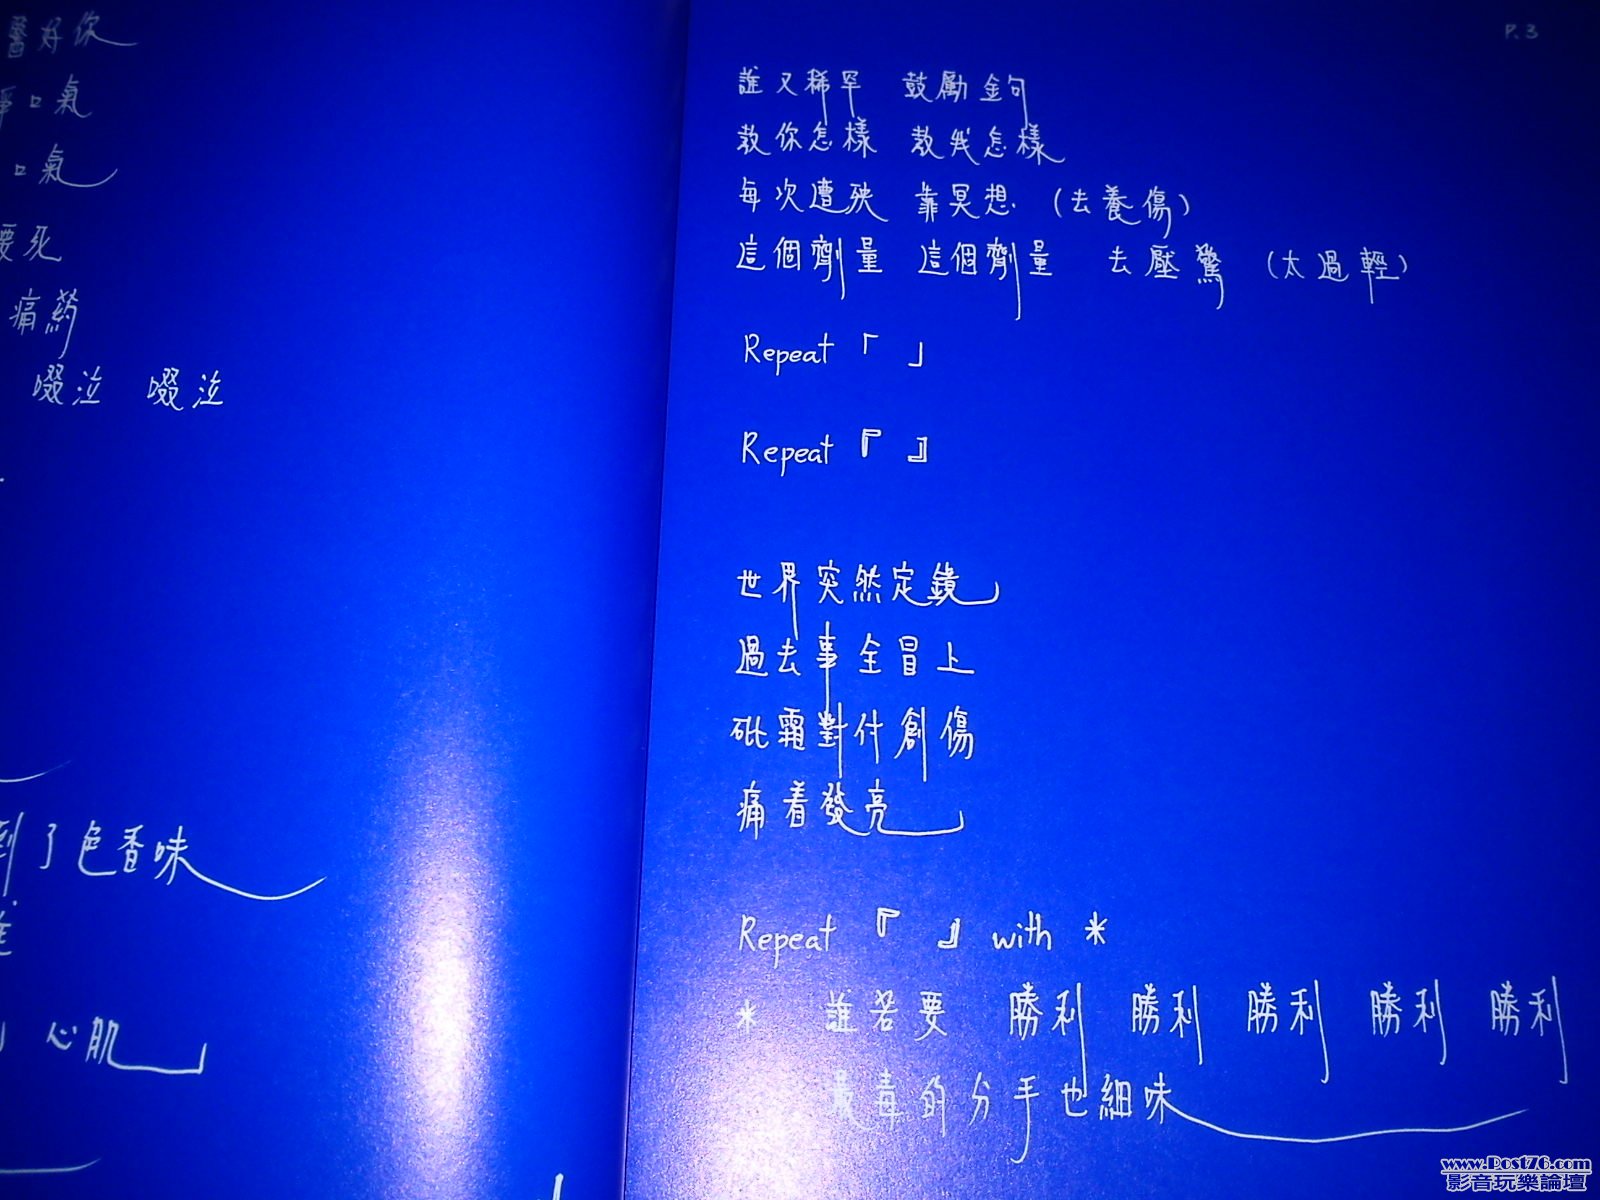 醫好你
爭口氣
口氣
要死
痛药
啜泣 啜泣
到了色香味
心肌
P.3
誰又稀罕 鼓勵金句
教你怎樣 教我怎樣
每次遭殃 靠冥想 (去養傷)
這個劑量 這個劑量 去壓驚 (太過輕)
Repeat 「 」
Repeat 『 』
世界突然定鏡
過去事全冒上
砒霜對什創傷
痛着發亮
Repeat 『 』 with *
* 誰若要 勝利 勝利 勝利 勝利 勝利
最毒的分手也細味
www.Post76.com
影音玩樂論壇